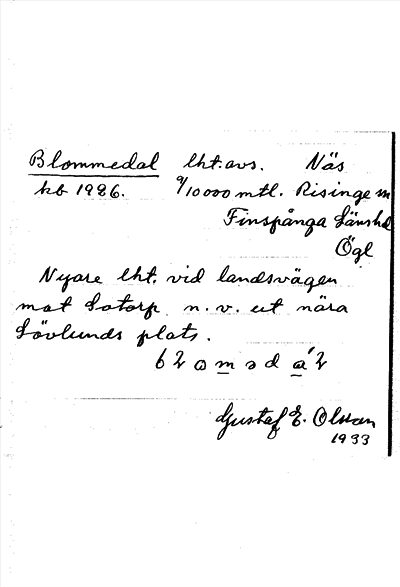 Blommedal lht. avs. Näs
kb 1926. 9/10000 mtl. Risinge sn
Finspånga länshd
Ögl
Nyare lht. vid landsvägen
mot Sotorp n. v. ut nära
Lövlunds plats.
Gustaf E. Olsson
1933